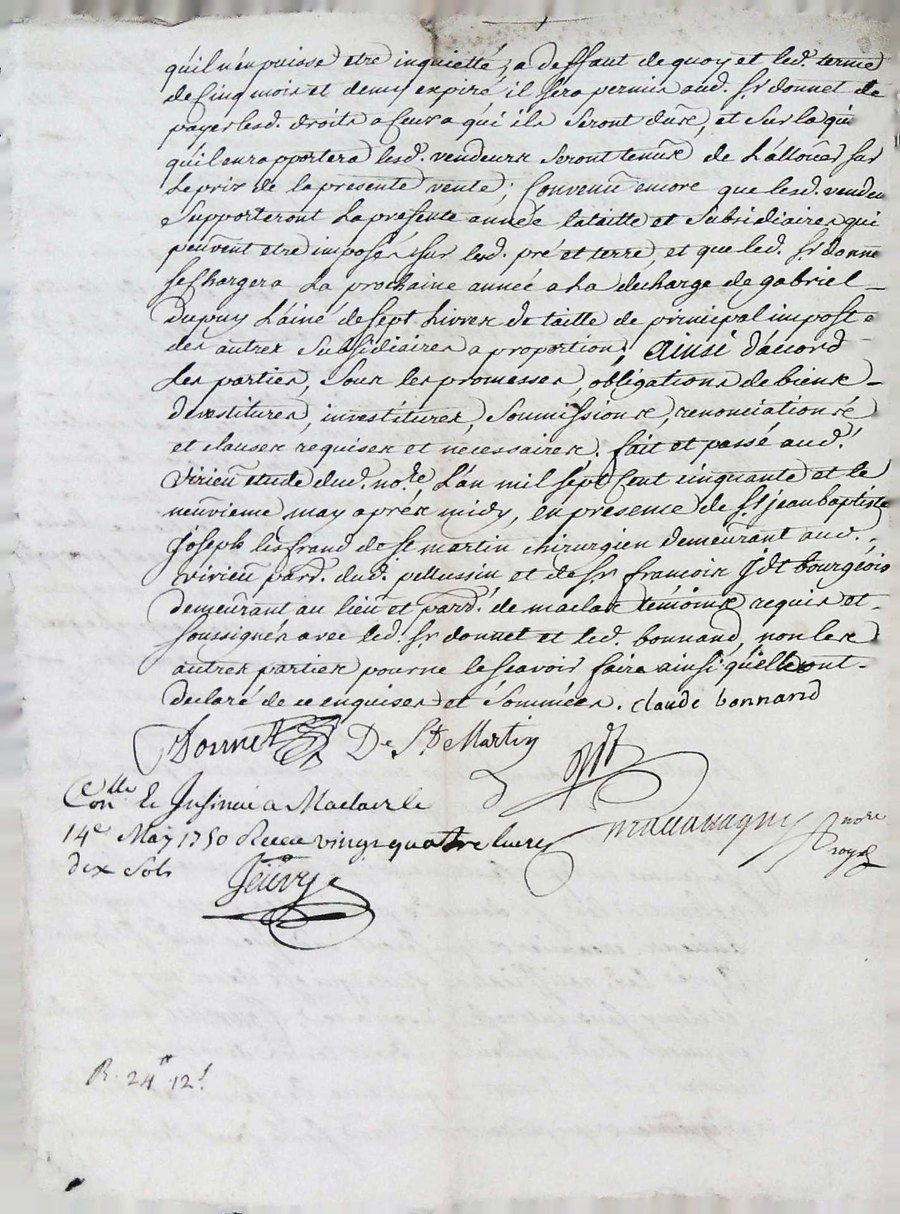 qu'il n'en puisse etre inquietté, a deffaut de quoy et led. terme
de cinq mois et demy expiré il sera permis aud. Sr donnet de
payer lesd. droits a ceux a qui ils seront dubs, et sur la qui
qu'il en rapportera lesd. vendeurs seront tenus de L'allouer sur
Le prix de la presente vente; Convenu encore que lesd. vendeu
Supporteront La presente année la taille et Subsidiaires qui
peuvent etre imposés sur lesd. pré et terre, et que led. Sr donne
se Chargera La prochaine année a La decharge de gabriel
Dupuy L'ainé de sept Livres de taille de principal impost e
des autres Subsidiaires a proportion, ainsi d'acord
Les parties, sous les promesses, obligations de biens
devestitures, investitures, soumissions, renonciations
et clauses requises et necessaires. fait et passé aud.
virieu etude dud. nore. L'an mil sept cent cinquante et le
neuvieme may aprés midy, en presence de Sr jean baptiste
Joseph lisfrand de st martin chirurgien demeurant aud.
virieu parr. dud. pellussin et de Sr francois Jdt bourgeois
demeurant au lieu et parr. de maclas temoins requis et
soussignés avec led. Sr donnet et led. bonnand, non les
autres parties pour ne le scavoir faire ainsi qu'elles ont
declaré de ce enquises et sommées. claude bonnand
Donnet De St Martin
Jdt
Con.lle & Insinué a Maclas le
14e May 1750 Receu vingt quatre livres
nore
royal
dix sols
R. 24# 12s